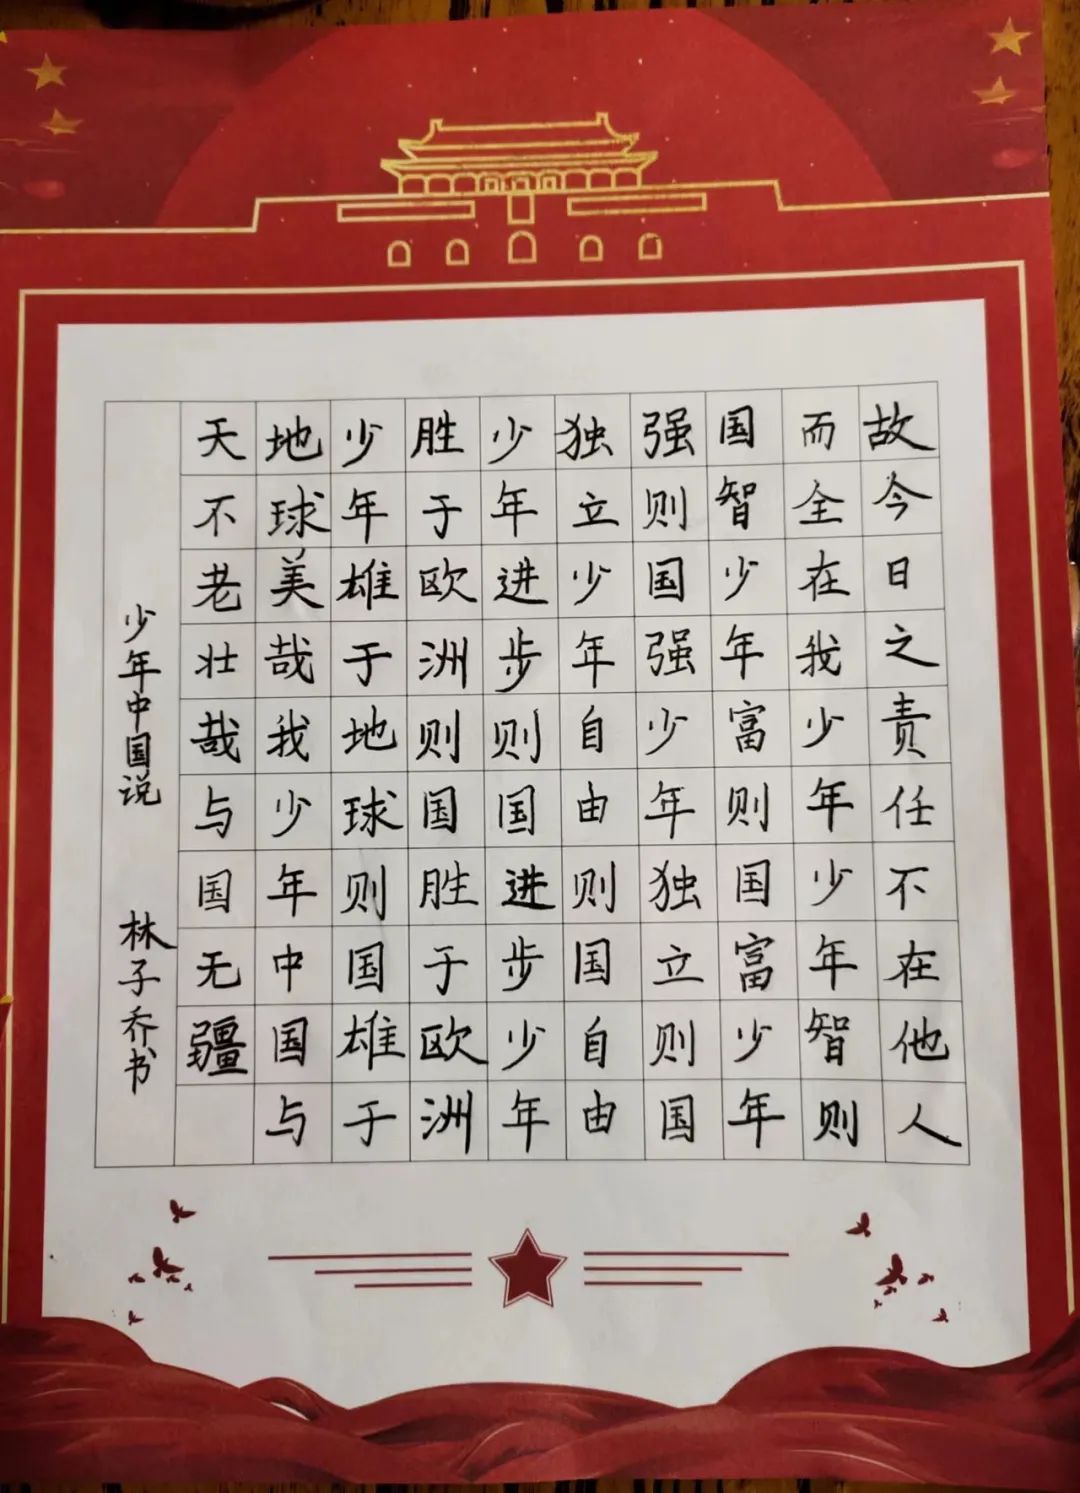 故今日之责任不在他人
而全在我少年少年智则
国智少年富则国富少年
强则国强少年独立则国
独立少年自由则国自由
少年进步则国进步少年
胜于欧洲则国胜于欧洲
少年雄于地球则国雄于
地球美哉我少年中国与
天不老壮哉与国无疆
少年中国说 林子乔书